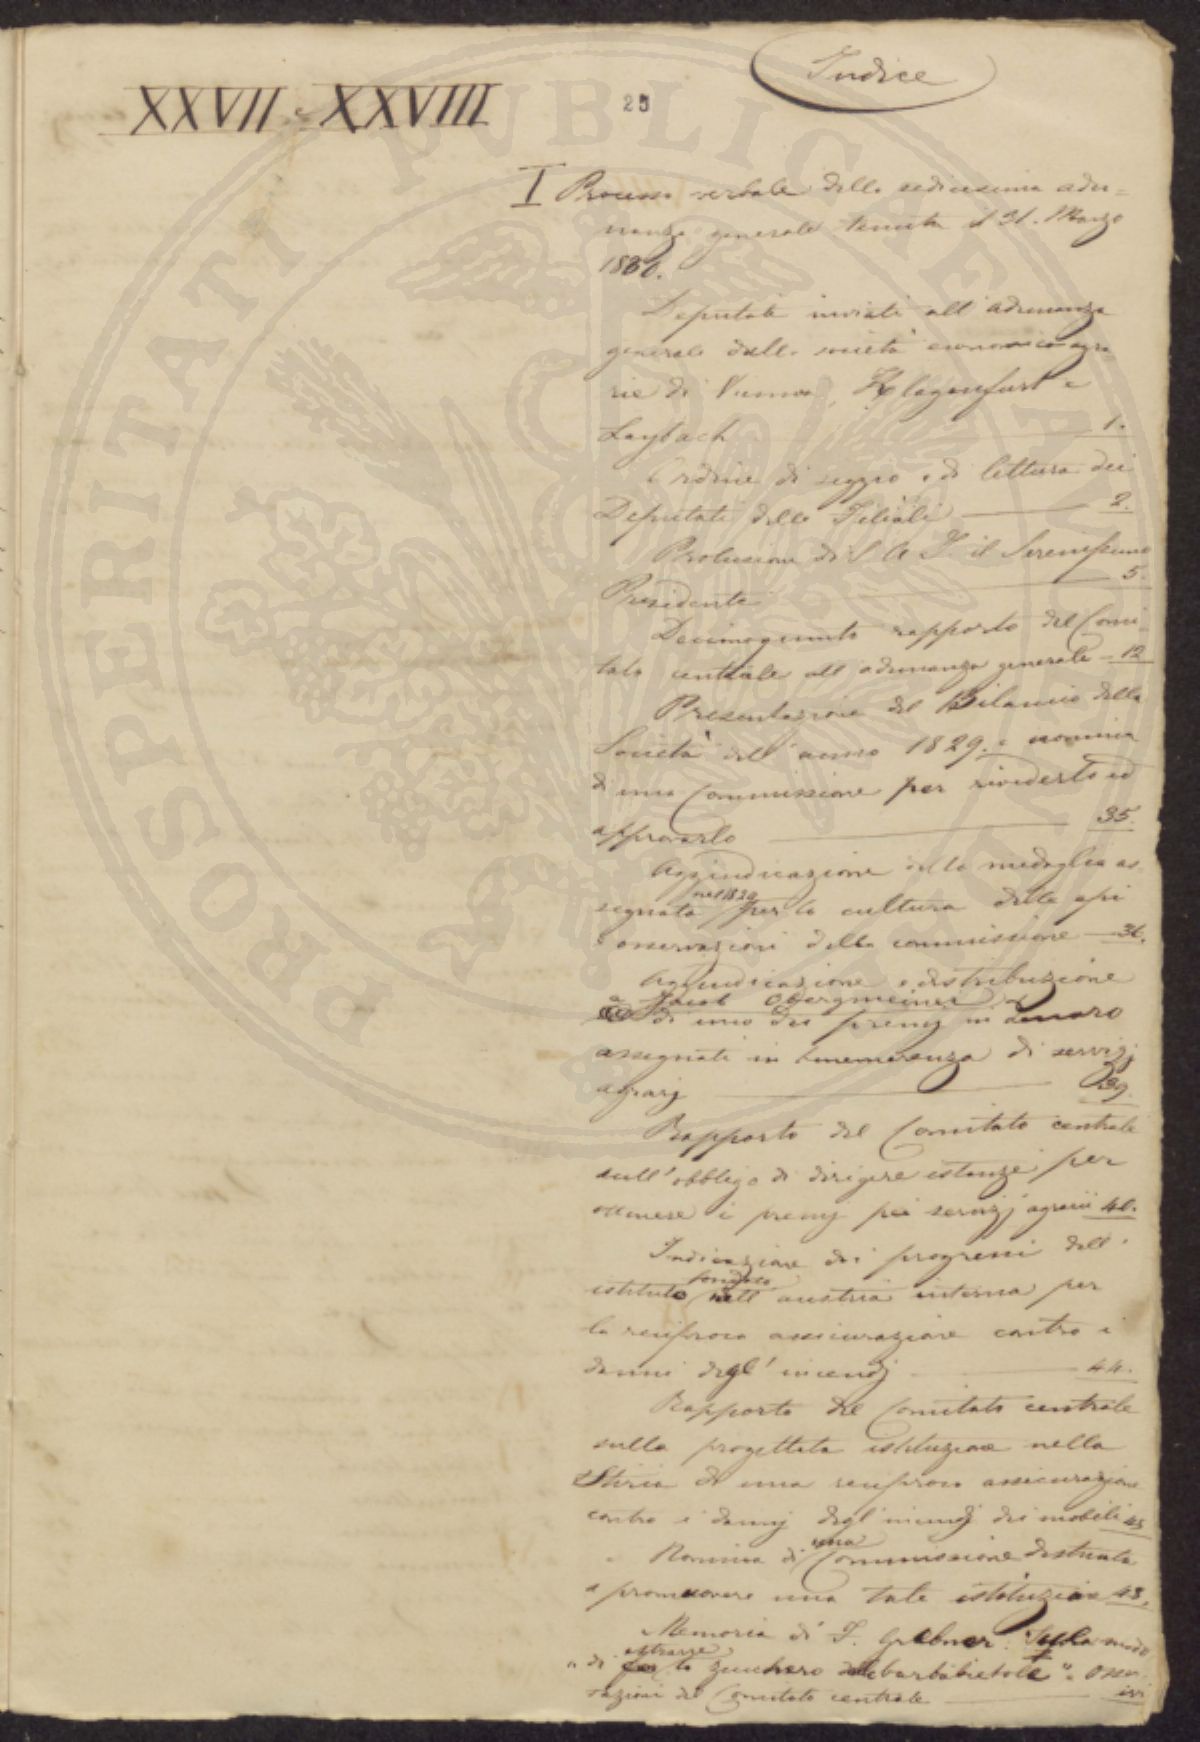 Indice
XXVII e XXVIII
25
I Processo verbale della sedicesima adu=
nanza generale tenuta il 31. Marzo
1830.
Deputati inviati all'adunanza
generale dalle società economico agra
rie di Vienna, Klagenfurt e
Laybach 1.
Ordine di seggio e di lettura dei
Deputati delle Filiali 2.
Prolusione di S. A. I. il Serenissimo
Presidente 5.
Decimoquinto rapporto del Comi=
tato centrale all'adunanza generale 12
Presentazione del Bilancio della
Società dell'anno 1829. e nomina
di una Commissione per rivederlo ed
approvarlo 35.
Aggiudicazione della medaglia as
segnata nel 1829 per la cultura delle api
e osservazioni della commissione 36.
Aggiudicazione e distribuzione
a Obergmeiner
di uno dei premj in denaro
assegnati in benemerenza di servigj
agrarj 39.
Rapporto del Comitato centrale
sull'obbligo di dirigere istanze per
ottenere i premj pei servizj agrarii 40.
Indicazione dei progressi dell'
istituto fondato nell'austria interna per
la reciproca assicurazione contro i
danni degl'incendj 44.
Rapporto del Comitato centrale
sulla progettata istituzione nella
Stiria di una reciproca assicurazione
contro i danni degl'incendj dei mobili 45
Nomina di una Commissione destinata
a promuovere una tale istituzione 48.
Memoria di F. Grebner: Sul modo
"di estrarre lo zucchero dalle barbabietole". Osser
vazioni del Comitato centrale ivi
PROSPERITATI PUBLICAE AUGENDAE